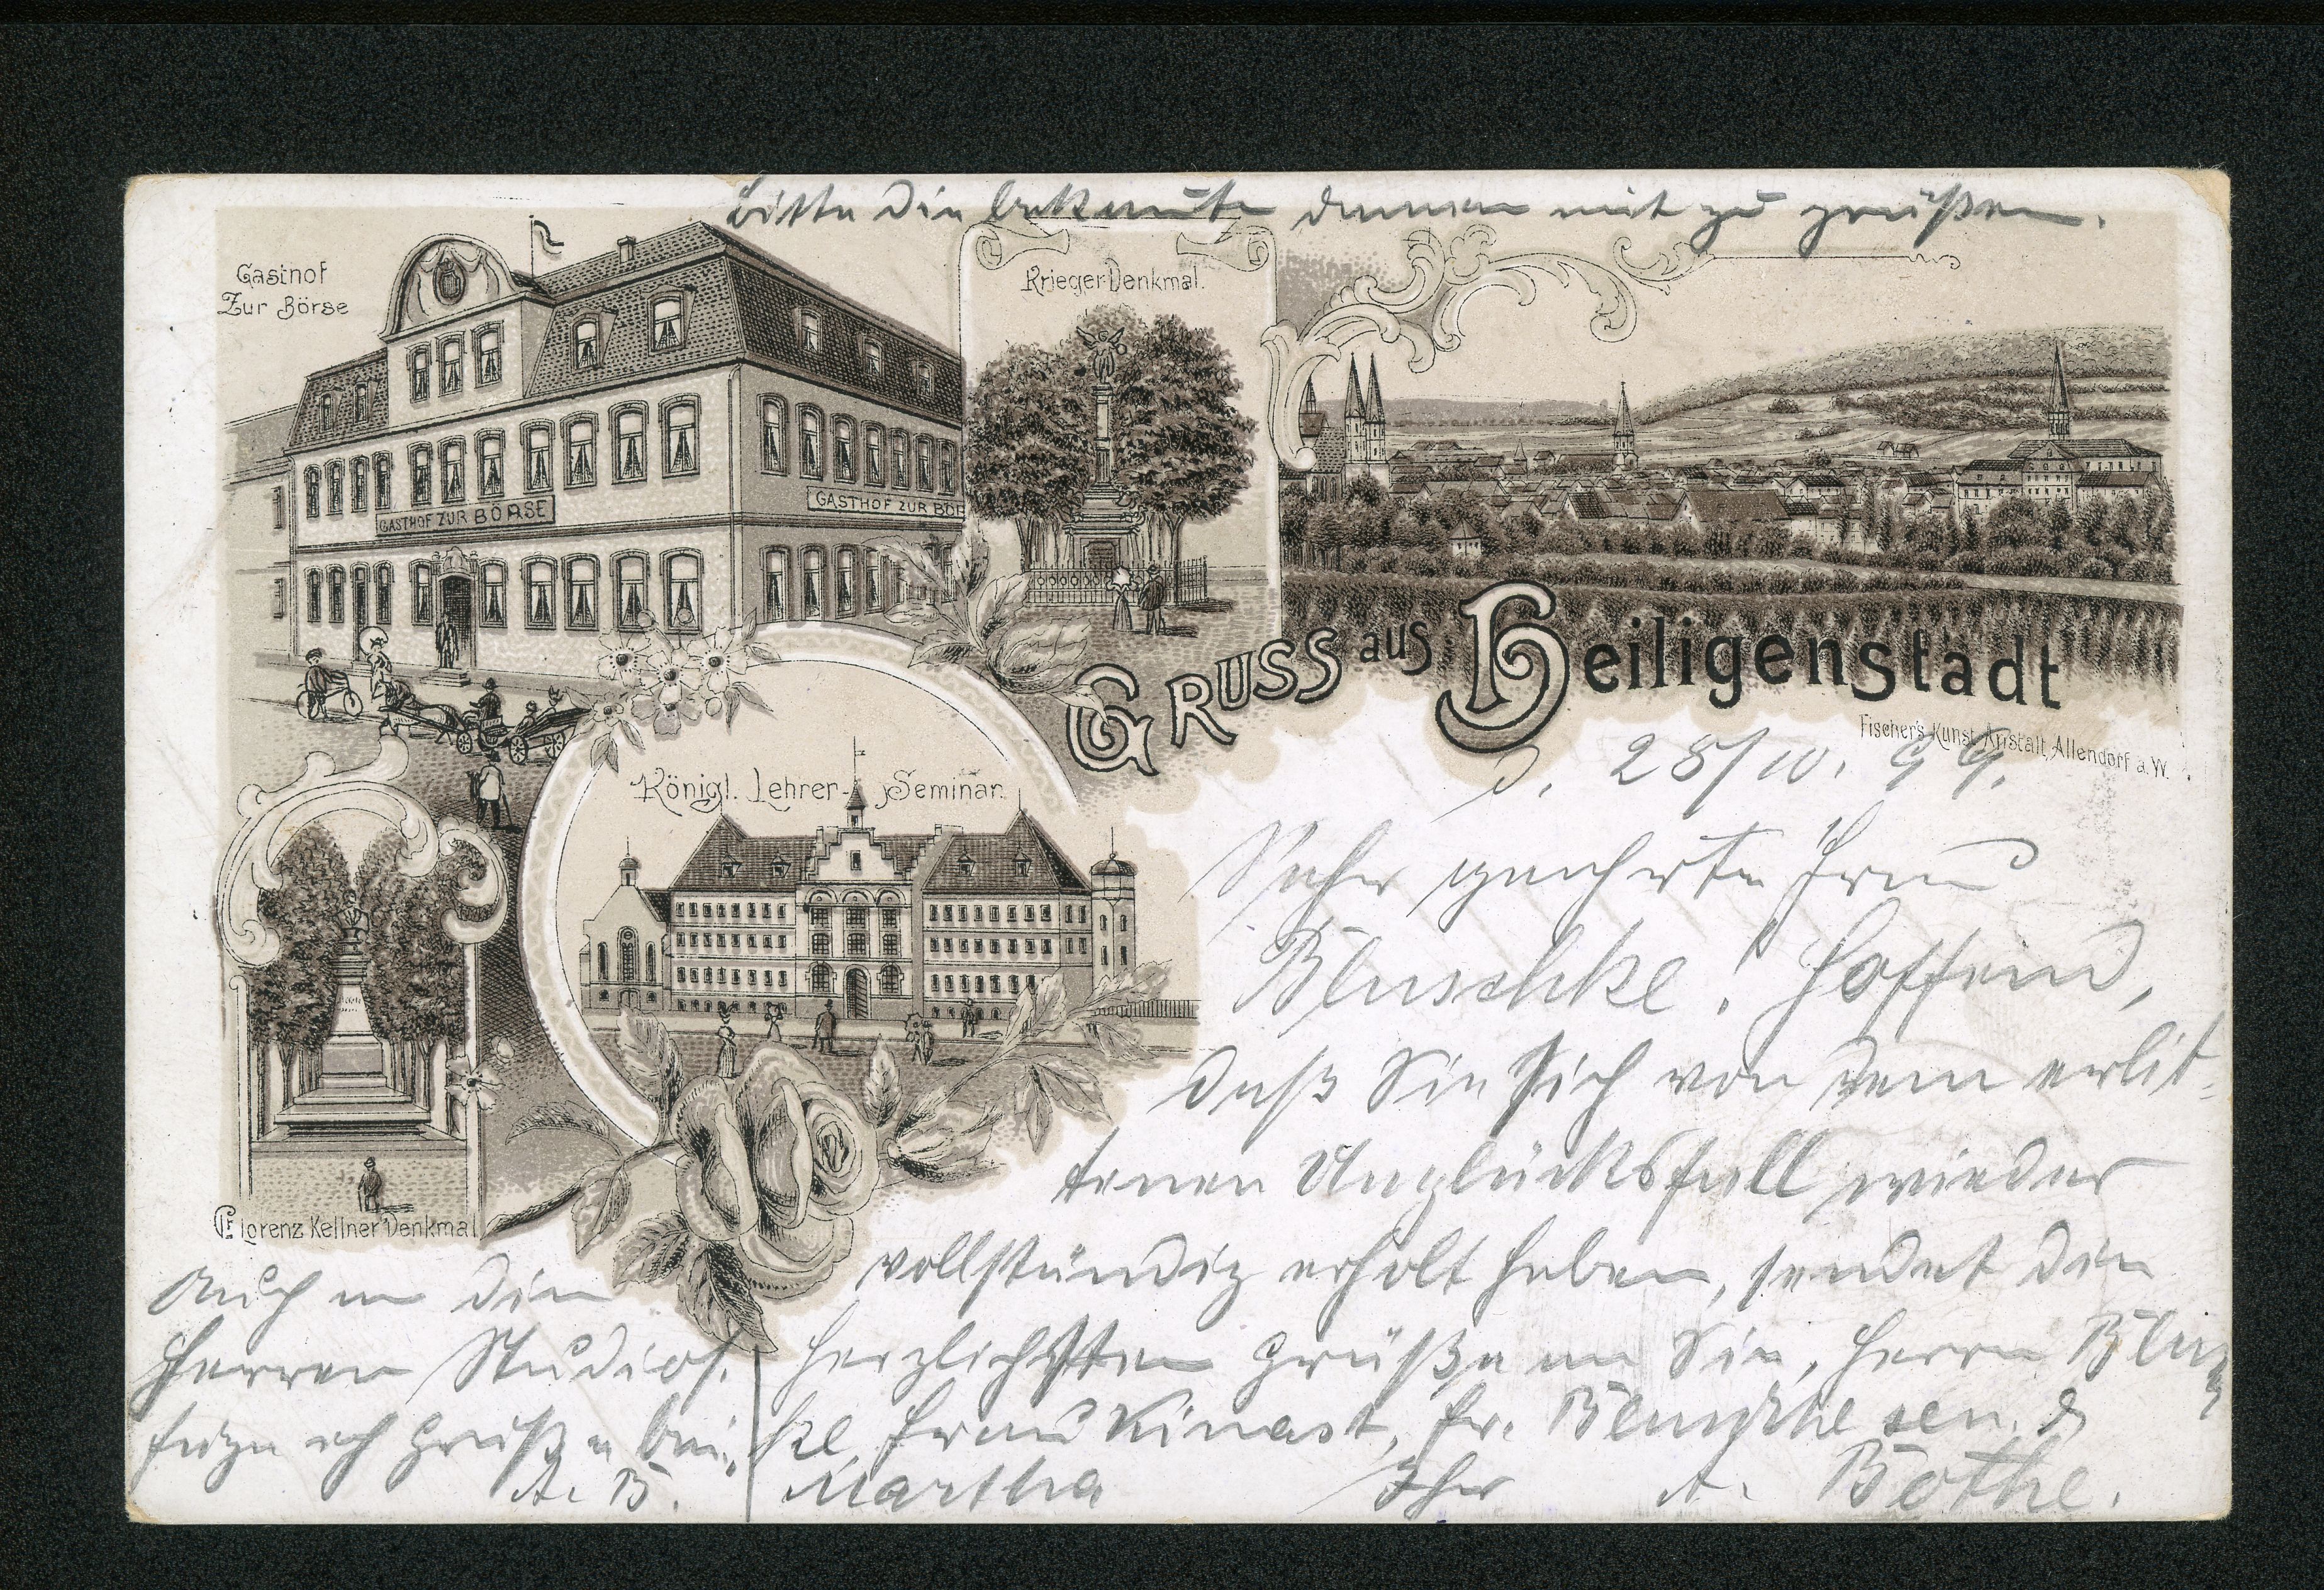 Bitte die bekannte Damen mit zu grüßen.
Gasthof
Zur Börse
Krieger-Denkmal.
GASTHOF ZUR BÖRSE
GASTHOF ZUR BÖR
GRUSS aus Heiligenstadt
Fischer's Kunst Anstalt, Allendorf a. W.
Königl. Lehrer-Seminar.
Lorenz Kellner Denkmal
d. 28/10. 99.
Sehr geehrte Frau
Bluschke! Hoffend,
daß Sie sich von dem erlit-
tenen Unglücksfall wieder
vollständig erholt haben, sendet die
herzlichsten Grüße an Sie, Herrn Blusch-
ke, Frau Kinast, Fr. Bluschke sen. &
Martha Ihr A. Bothe.
Auch an die
Herren Studios.
füge ich Grüße bei.
A. B.